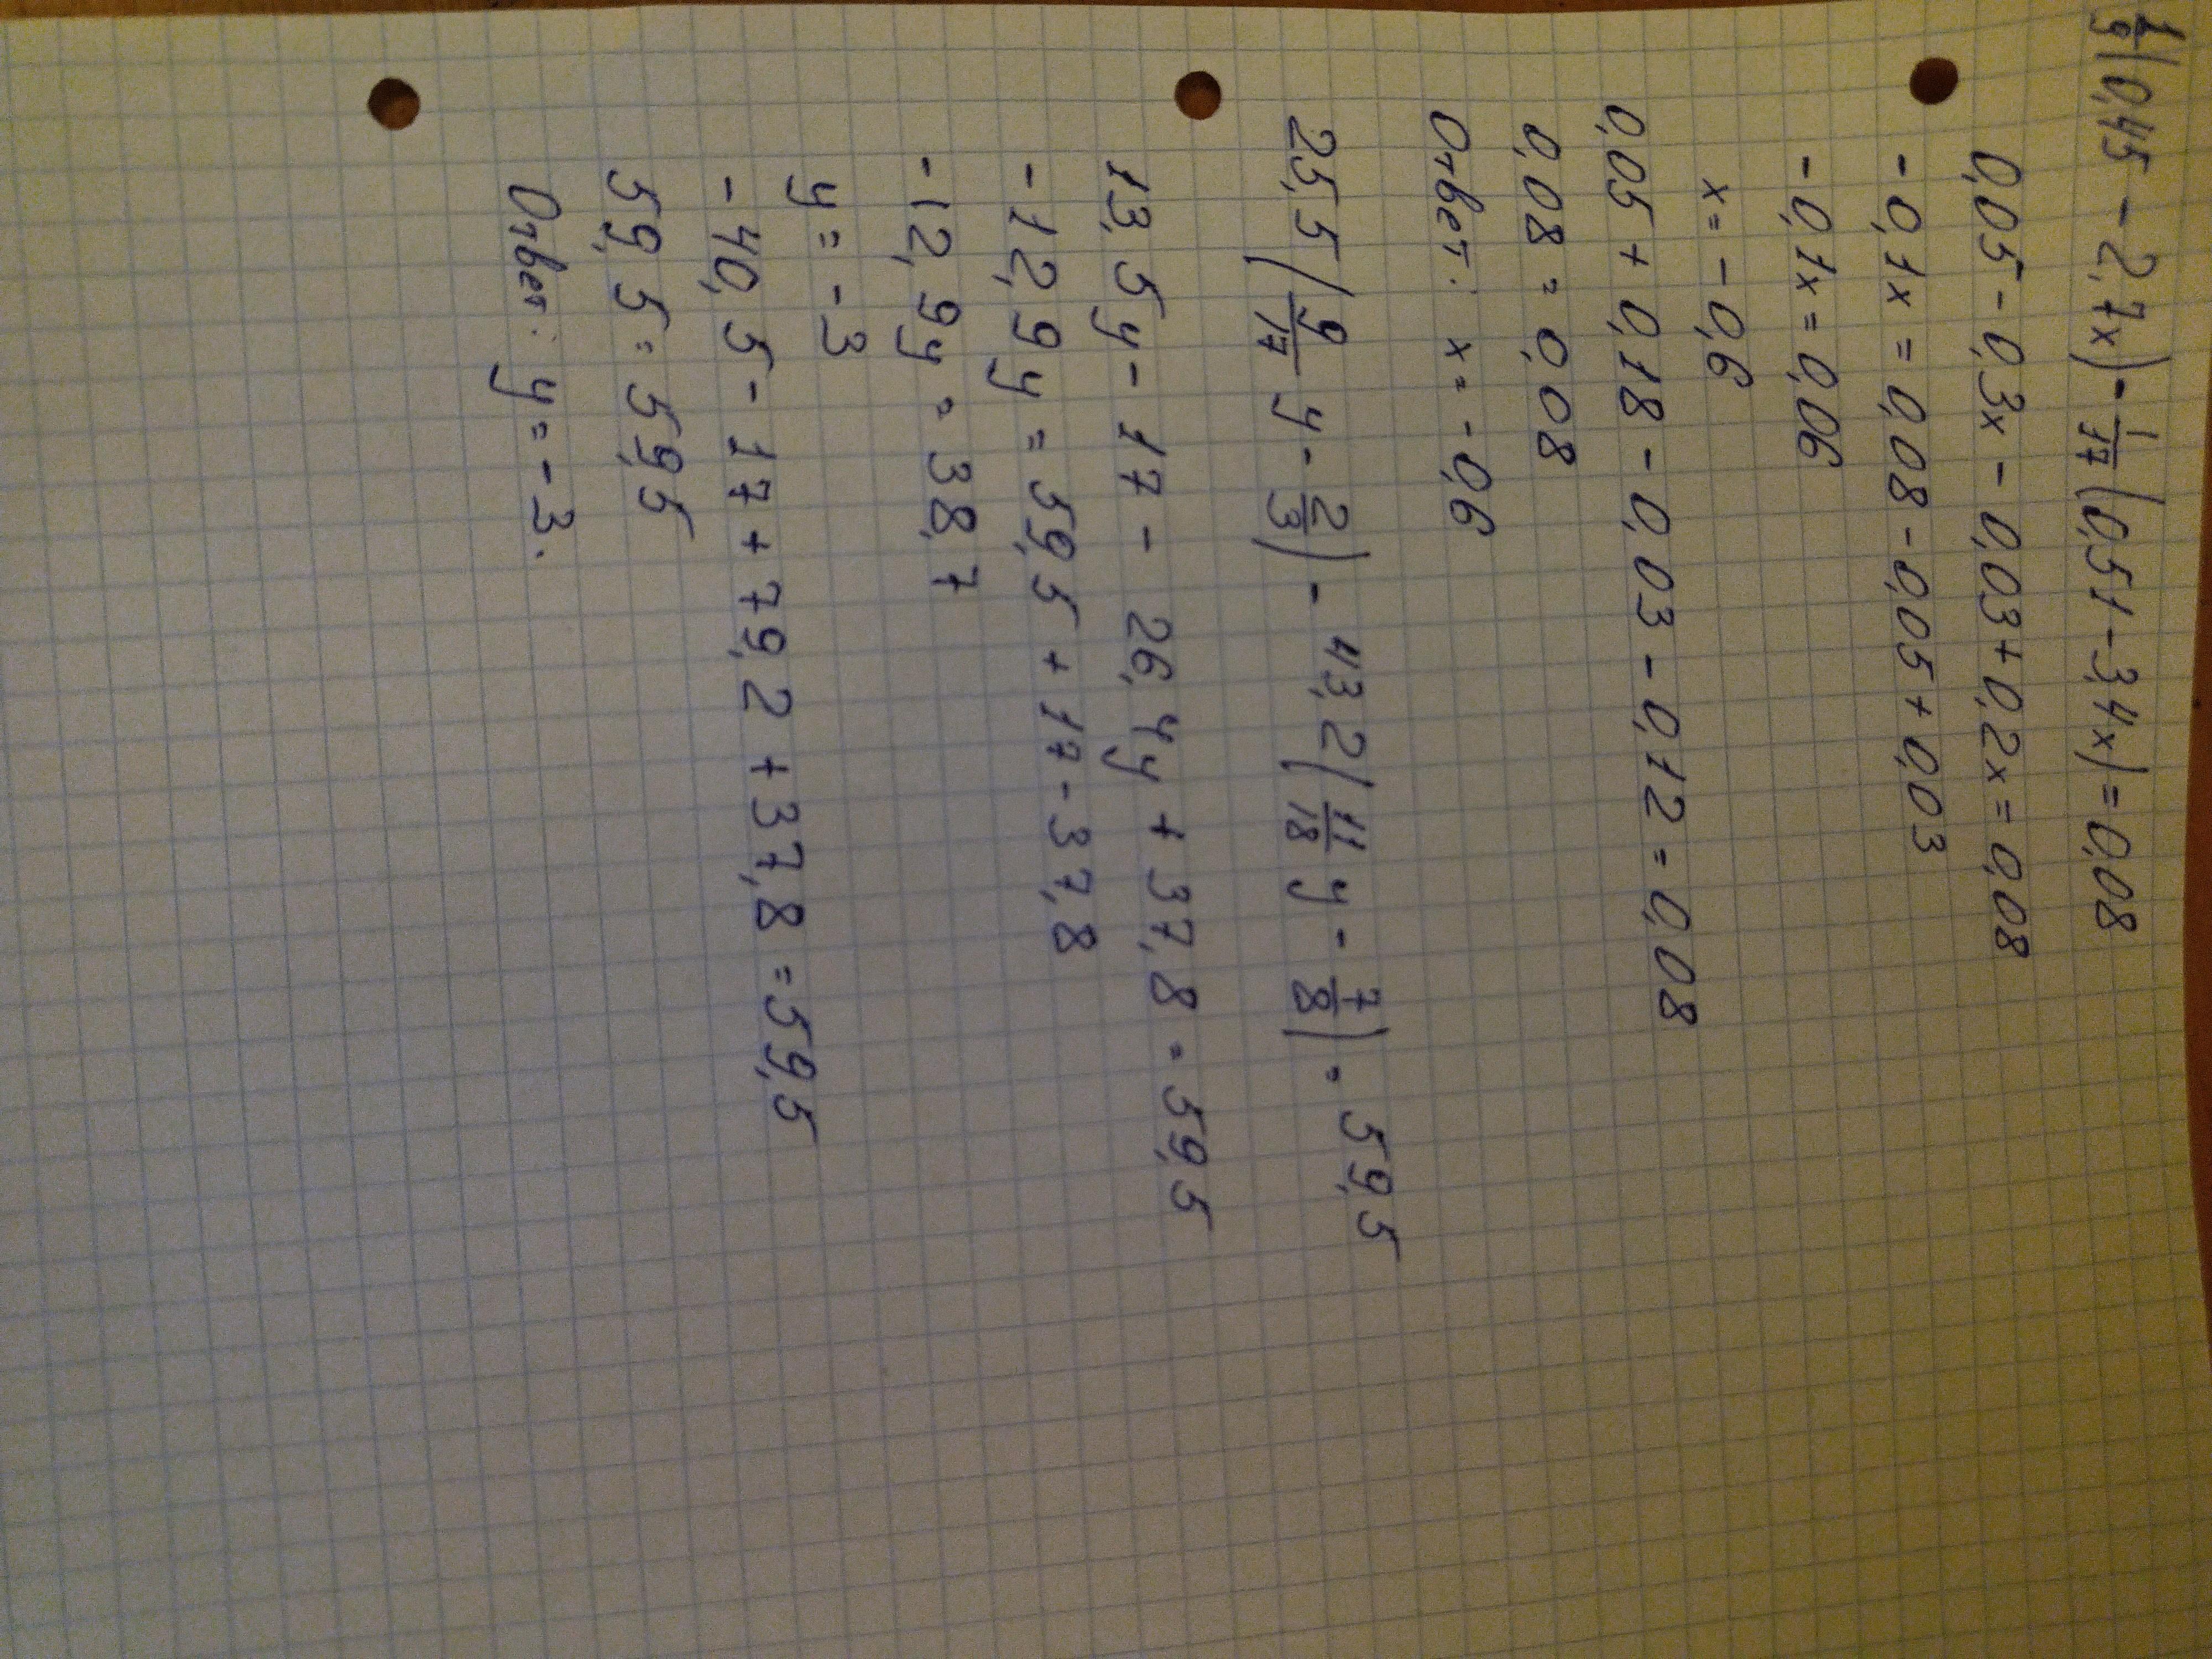 1/9(0,45 - 2,7x) - 1/17(0,51 - 3,4x) = 0,08
0,05 - 0,3x - 0,03 + 0,2x = 0,08
-0,1x = 0,08 - 0,05 + 0,03
-0,1x = 0,06
x = -0,6
0,05 + 0,18 - 0,03 - 0,12 = 0,08
0,08 = 0,08
Ответ: x = -0,6
25,5(9/17 y - 2/3) - 43,2(11/18 y - 7/8) = 59,5
13,5y - 17 - 26,4y + 37,8 = 59,5
-12,9y = 59,5 + 17 - 37,8
-12,9y = 38,7
y = -3
-40,5 - 17 + 79,2 + 37,8 = 59,5
59,5 = 59,5
Ответ: y = -3.